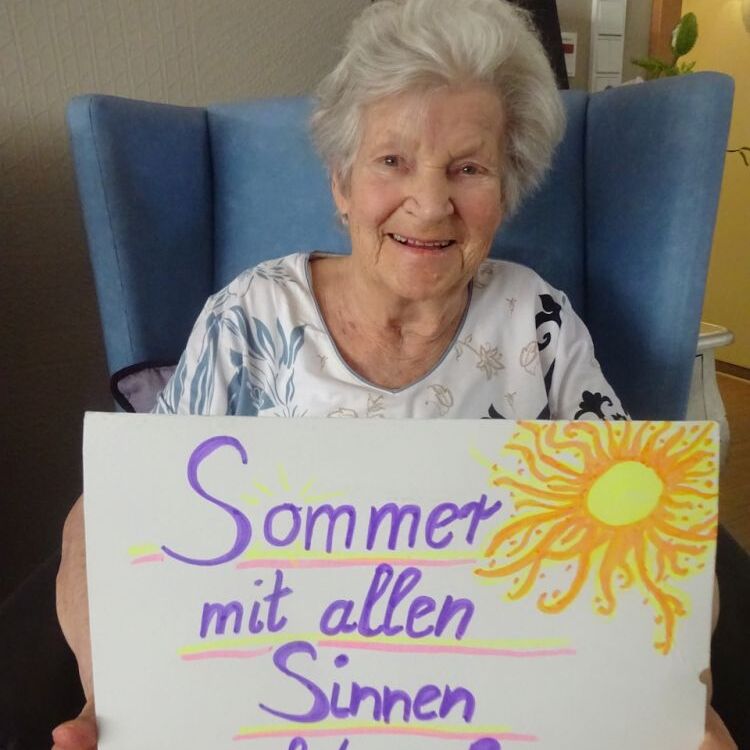 Sommer
mit allen
Sinnen